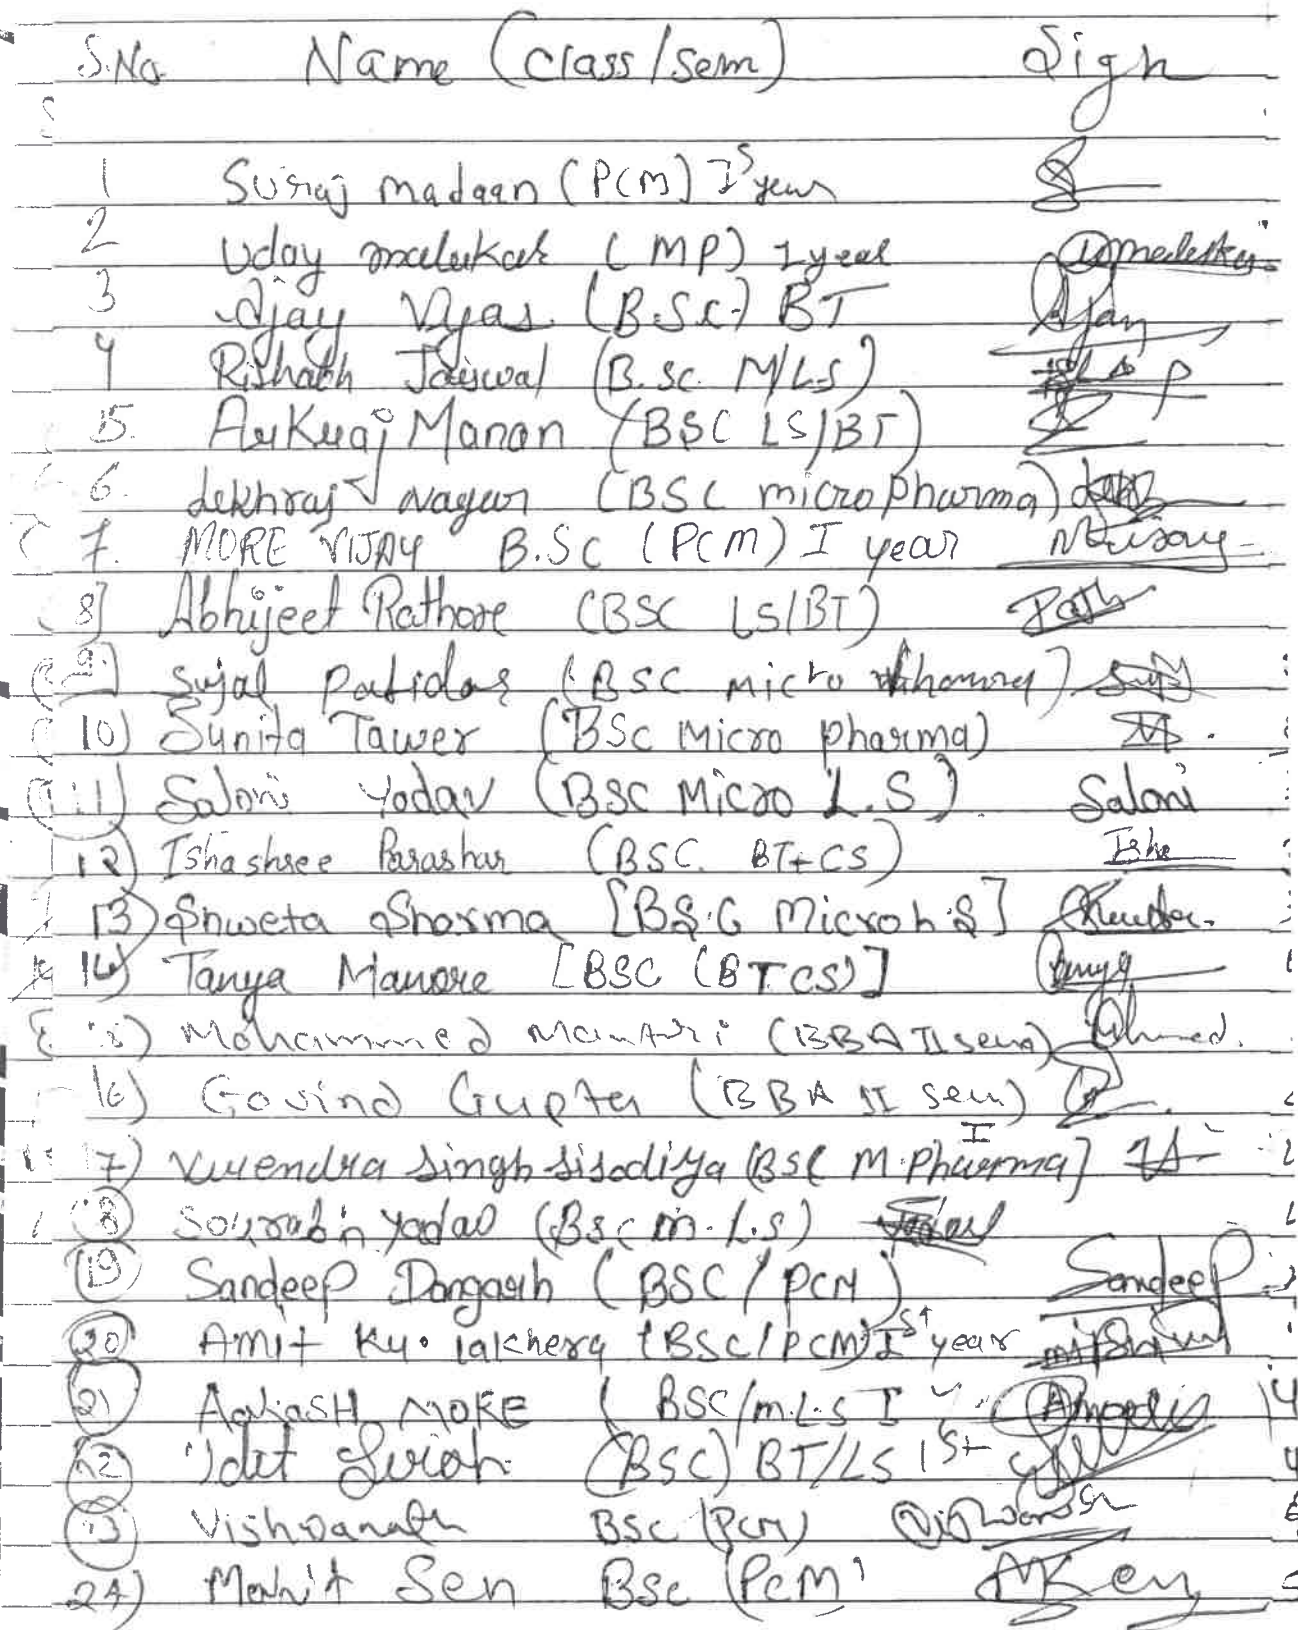 S.No. Name (class/sem) Sign
1 Suraj madaan (PCM) I s year
2 Uday malukar (MP) I year
3 Ajay Vyas (B.Sc.) BT Ajay
4 Rishabh Jaiswal (B.sc. M/LS)
5. Manan (BSC LS/BT)
6. Lekhraj Nagar (BSC micro pharma)
7. MORE VIJAY B.SC (PCM) I year
8] Abhijeet Rathore (BSC LS/BT)
9. Sujal Patidar (BSC micro
10) Sunita Tawer (BSC Micro pharma)
11) Saloni Yadav (BSC Micro L.S) Saloni
12) Ishashree Parashar (BSC. BT+CS) Isha
13) Shweta Sharma [BS.C Micro L.S]
14) Tanya Manore [BSC (BT CS)] Tanya
15) Mohammed Mantri (BBA II sem)
16) Govind Gupta (BBA II sem)
17) Virendra Singh Sisodiya (BSC M.Pharma) I
18 Sourabh yadav (BSC m.L.S)
19 Sandeep Dangarh (BSC/PCM) Sandeep
20 Amit Ku. lakhera (BSC/PCM) Ist year
21 AakasH MORE (BSC/m.L.S I
22 (BSC) BT/LS 1st
23 Vishwanath BSC (PCM) Vishwanath
24) Mohit Sen BSC (PCM)